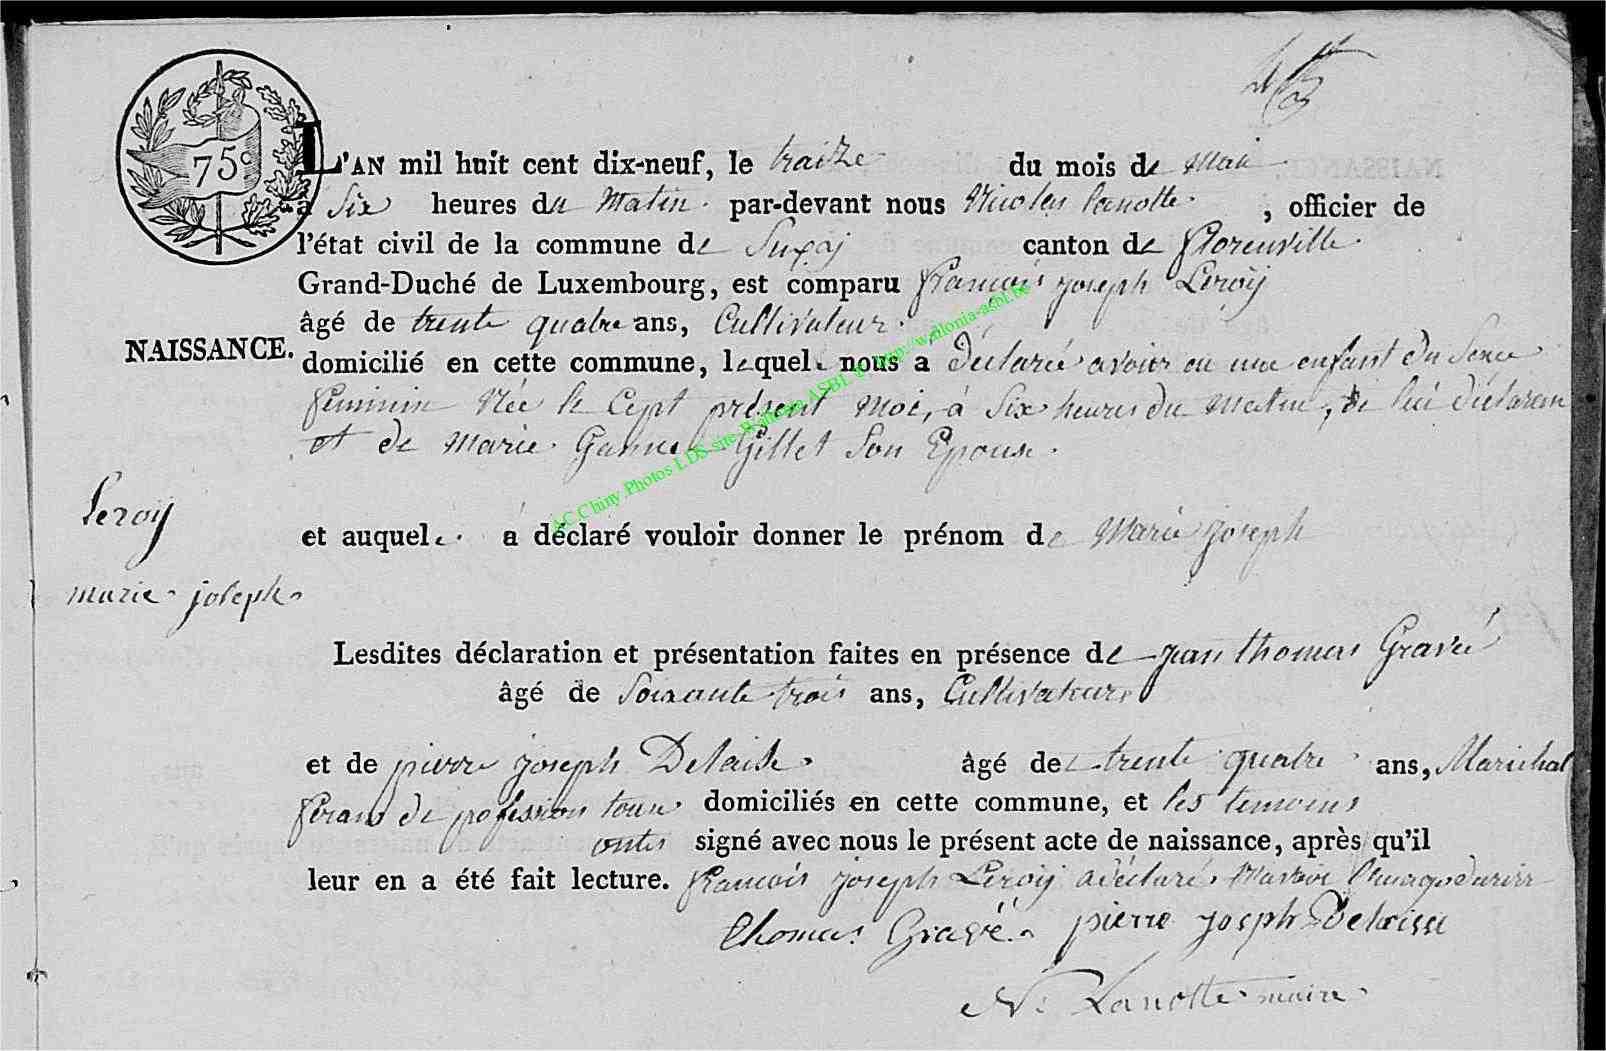 75c
L'AN mil huit cent dix-neuf, le traize du mois de Mai
à Six heures du Matin par-devant nous Nicolas Lanotte, officier de
l'état civil de la commune de Suxoij canton de florenville
Grand-Duché de Luxembourg, est comparu françois joseph Leroÿ
âgé de trente quatre ans, Cultivateur
NAISSANCE.
domicilié en cette commune, lequel nous a déclarée avoir eu une enfant du Sexe
feminin Née le Cept présent moi, à Six heures du matin, de lui déclaran
et de Marie Gillet Son Epouse
Leroÿ
marie joseph
et auquel a déclaré vouloir donner le prénom de Marie joseph
Lesdites déclaration et présentation faites en présence de jean thomas Gravé
âgé de Soixante trois ans, Cultivateur
et de pierre joseph Delaise âgé de trente quatre ans, Marichal
feran de profession tous domiciliés en cette commune, et les temoins
onts signé avec nous le présent acte de naissance, après qu'il
leur en a été fait lecture. francois joseph Leroÿ a déclaré
thomas Gravé pierre joseph Delaisse
N. Lanotte maire
AC Chiny Photos LDS site Wallonia ASBL http://wallonia-asbl.be